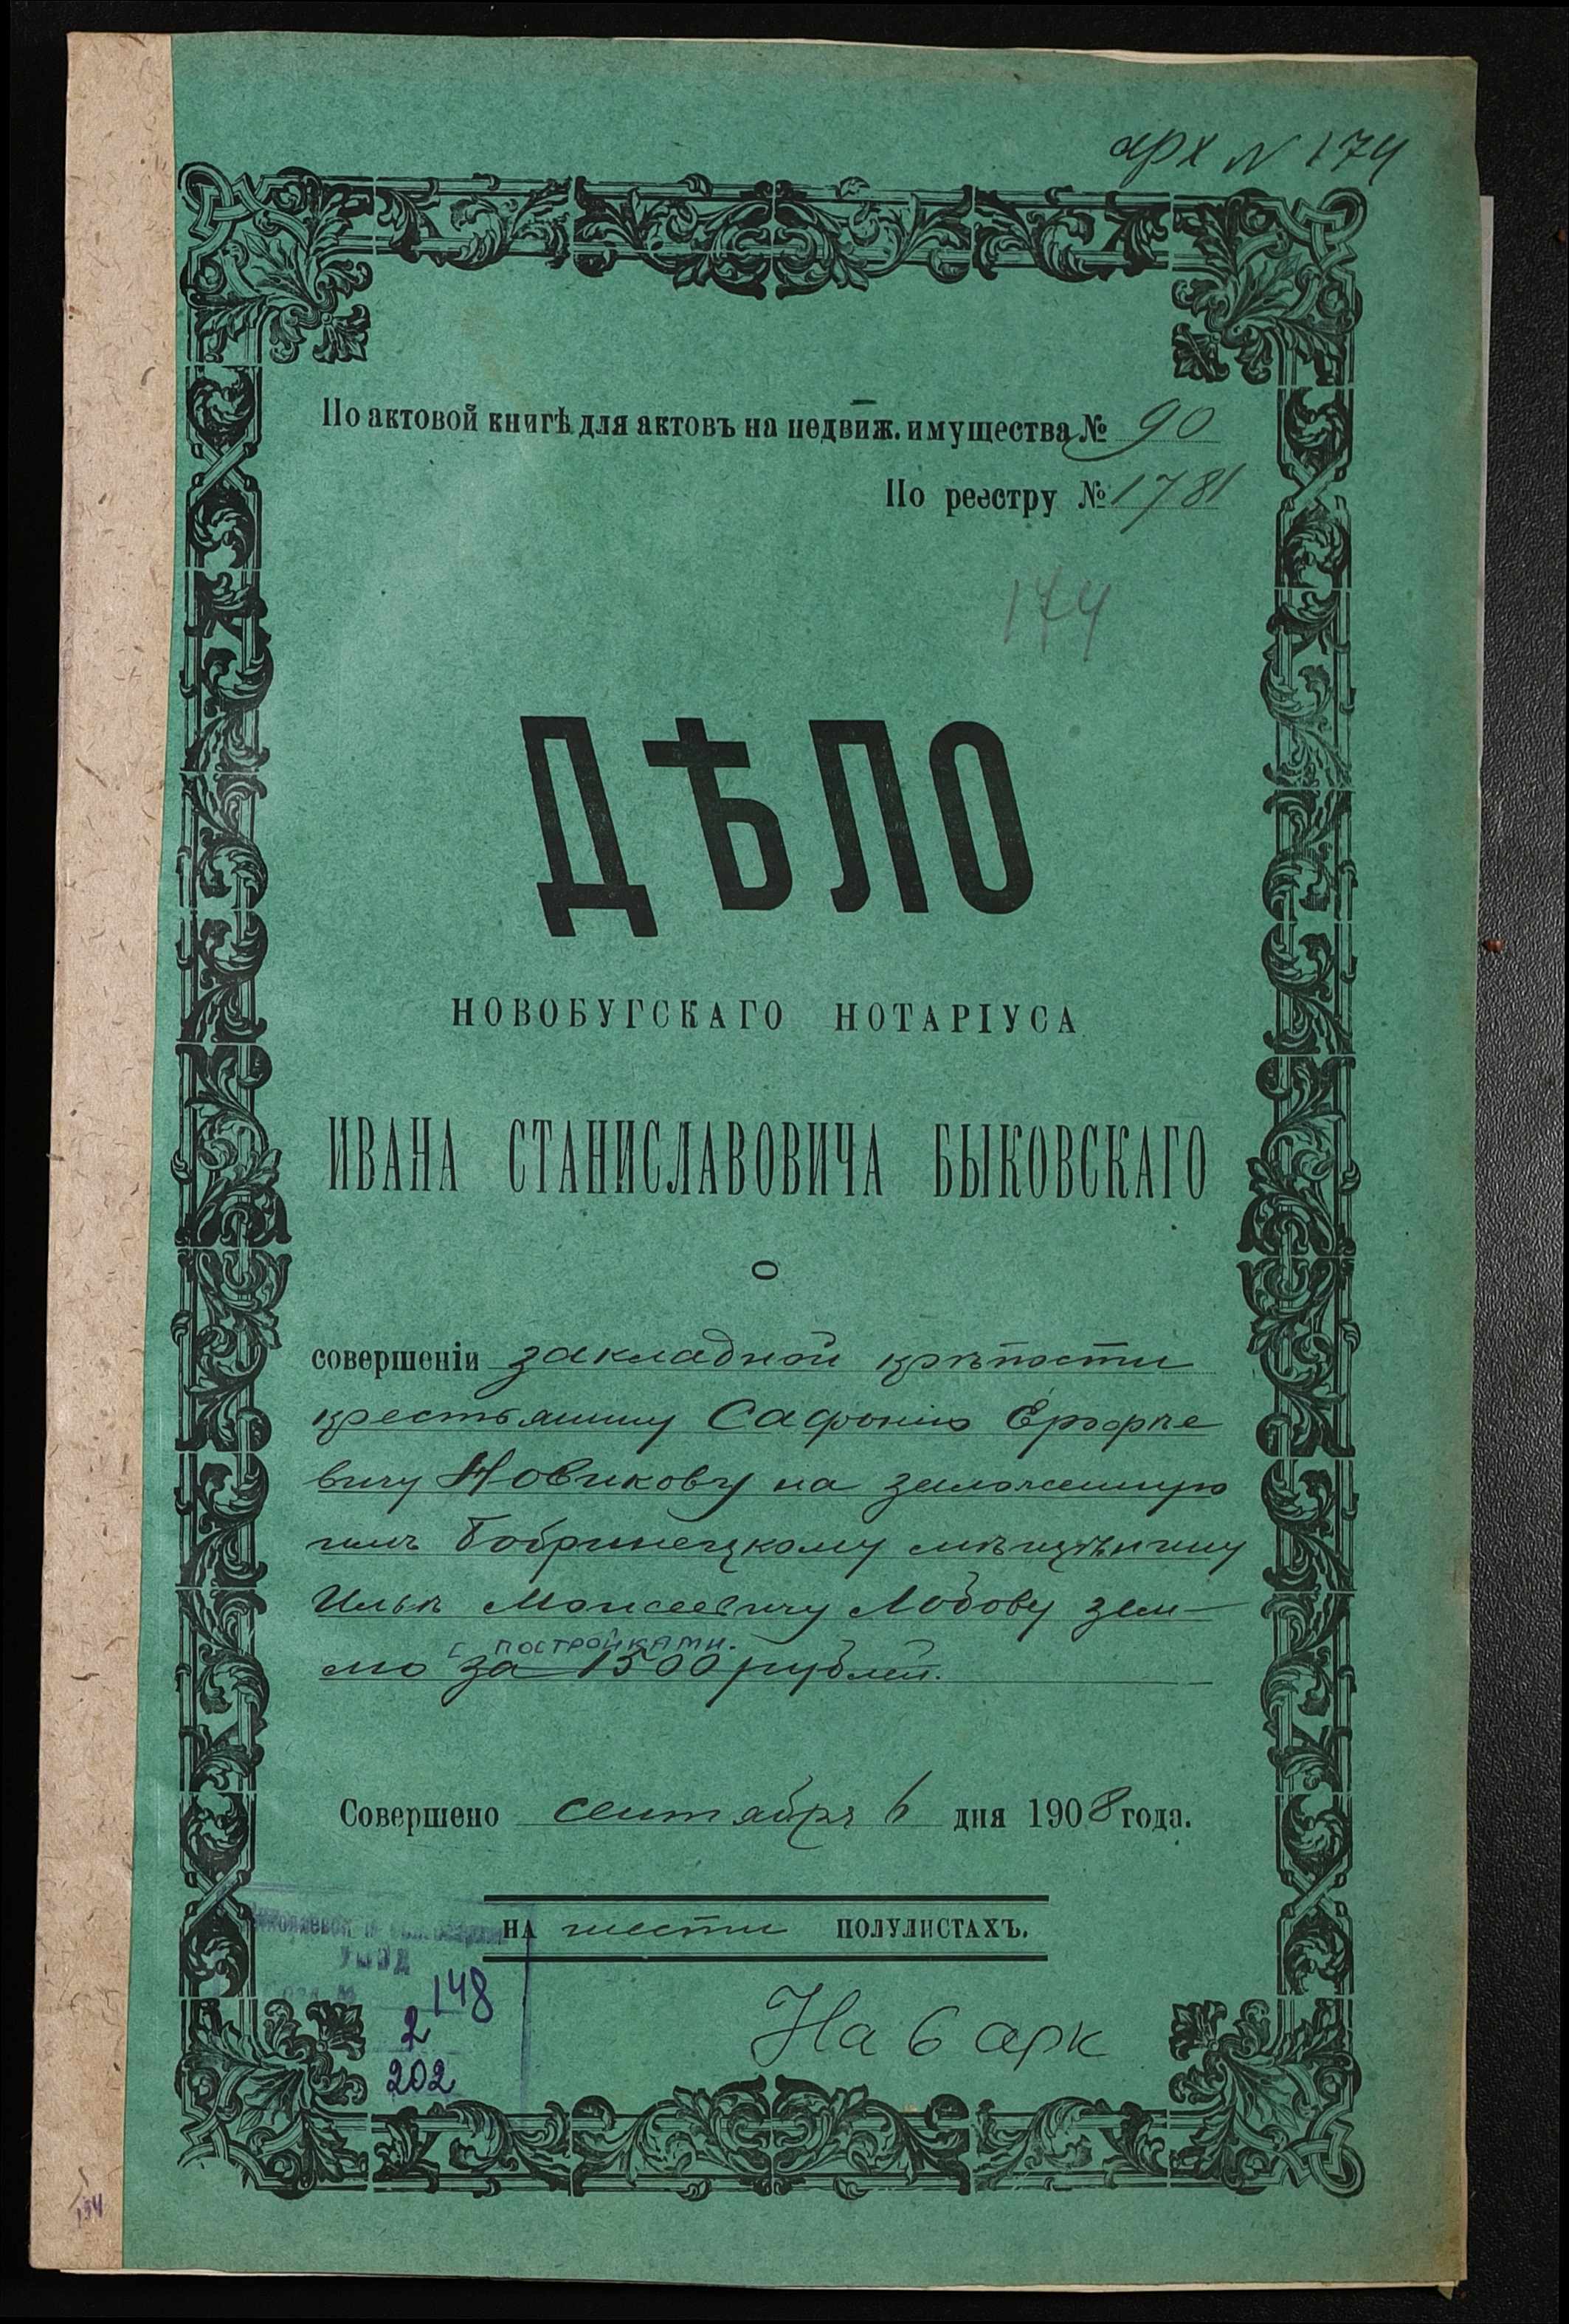 арх N 174
По актовой книгѣ для актовъ на недвиж. имущества № 90
По реестру № 1781
174
ДѢЛО
НОВОБУГСКАГО НОТАРІУСА
ИВАНА СТАНИСЛАВОВИЧА БЫКОВСКАГО
О
совершеніи закладной крѣпости
крестьянину Сафонію Ерофѣе
вичу Новикову на заложенную
имъ Бобринецкому мѣщанину
Ильѣ Моисеевичу Лобову зем-
лю за 1500 рублей.
с постройками.
Совершено сентября 6 дня 1908 года.
НА шести ПОЛУЛИСТАХЪ.
148
2
202
На 6 арк